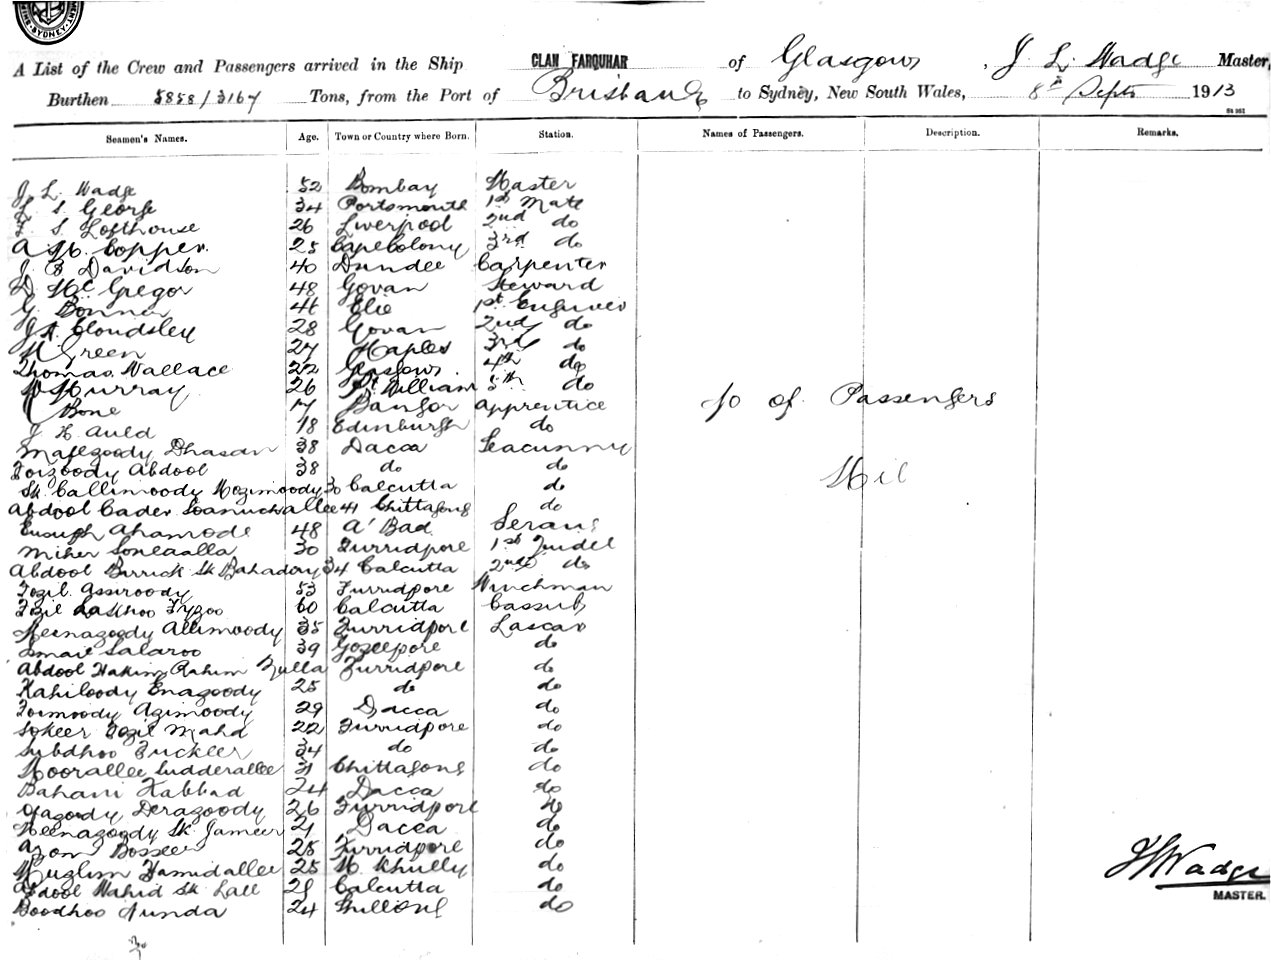 SYDNEY
A List of the Crew and Passengers arrived in the Ship CLAN FARQUHAR of Glasgow, J L Wadge Master,
Burthen 5858/3167 Tons, from the Port of Brisbane to Sydney, New South Wales, 8th Septr 1913
Seamen's Names. Age. Town or Country where Born. Station. Names of Passengers. Description. Remarks.
J. L. Wadge 52 Bombay Master
L S George 34 Portsmouth 1st Mate
F. S. Lofthouse 26 Liverpool 2nd do
A W. Copper. 25 Cape Colony 3rd do
J. B Davidson 40 Dundee Carpenter
D McGregor 48 Govan Steward
G. Bonner Elie 1st Engineer
J A Cloudsley 28 Govan 2nd do
Green 27 Naples 3rd do
Thomas Wallace 22 Glasgow. 4th do
W Murray 26 Ft William 5th do
Bone 17 Bangor Apprentice
J H Auld 18 Edinburgh do
Dhasan 38 Dacca Seacunny
Abdool 38 do do
Sk. Callimoody Mozimoody 30 Calcutta do
Abdool Cader 41 Chittagong do
Ahamode 48 A'Bad Serang
Miher 30 Furridpore 1st Tindel
Abdool Barrick Sk Bahadory 34 Calcutta 2nd do
Fozil. Assiroody 53 Furridpore Winchman
Fozil Laskhoo Fyzoo 60 Calcutta Cassub
Meenagoody Allimoody 35 Furridpore Lascar
Ismail Salaroo 39 Gozeepore do
Abdool Hakim Rahim Zulla Furridpore do
Kahiloody Enagoody 25 do do
Formoody Azimoody 29 Dacca do
Sokeer Fozil Mahd 22 Furridpore do
Subdhoo Buckeer 34 do do
Noorallee Sudderallee 31 Chittagong do
Bahani Habbad 24 Dacca do
Deragoody 26 Furridpore do
Meenagoody Sk. Jameer 21 Dacca do
Azom Bosseer 25 Furridpore do
Muglim Hamidallee 25 M. Khully do
Abdool Wahid Sk Lall 28 Calcutta do
Boodhoo Nunda 24 do
No of Passengers
Nil
J L Wadge
MASTER.